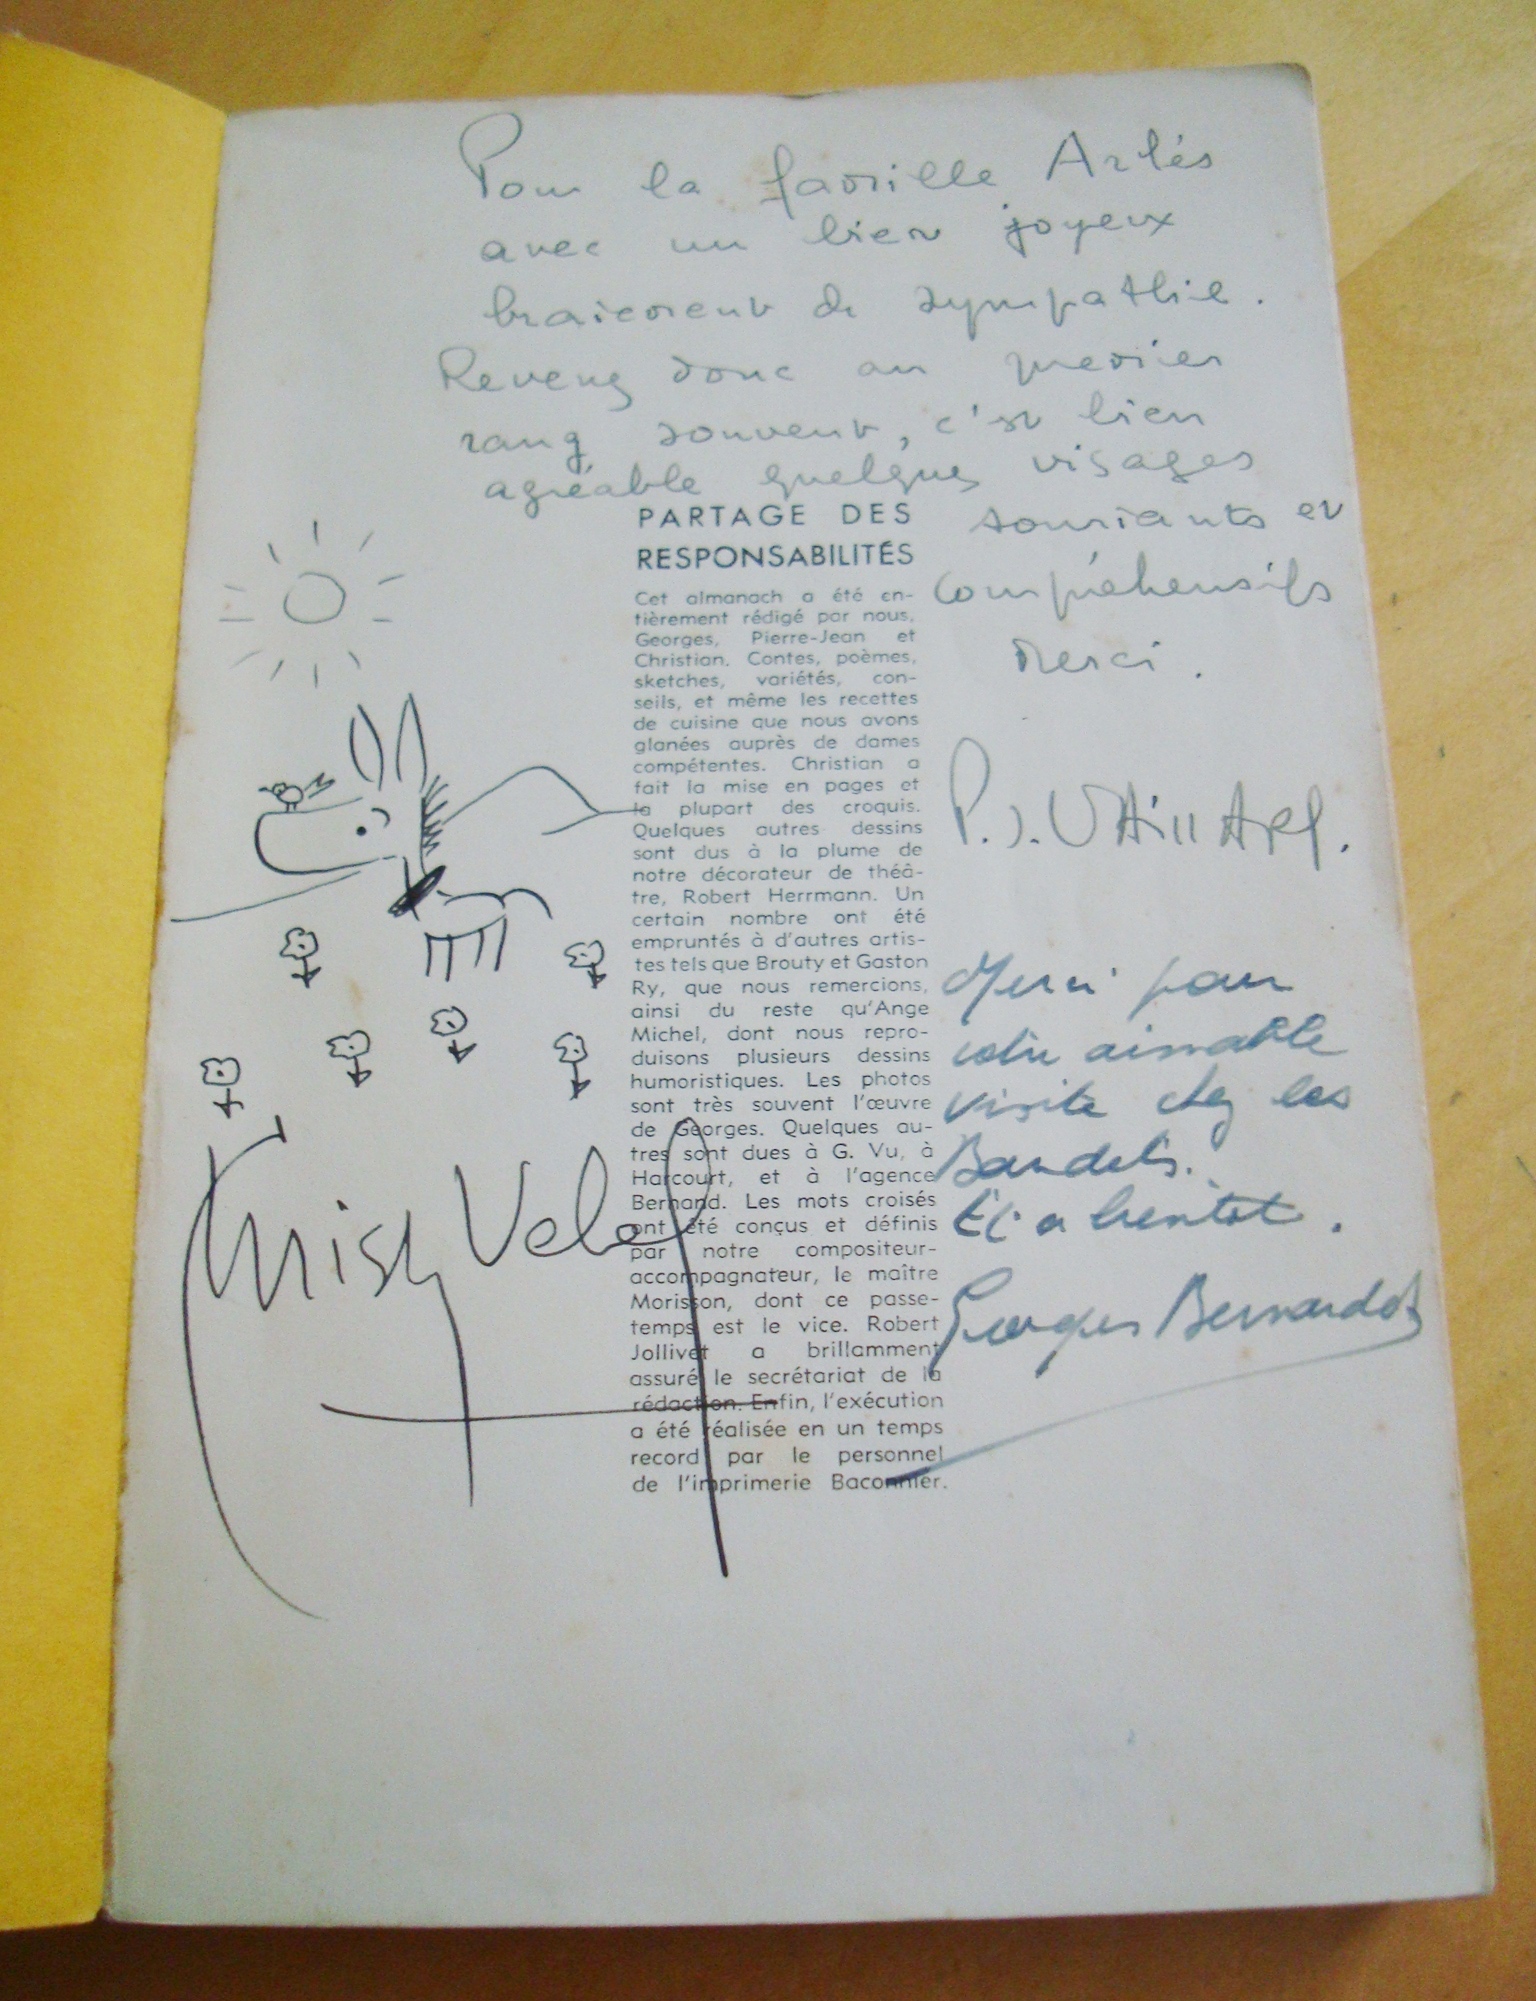 Pour la famille Arlès
avec un bien joyeux
braiement de sympathie.
Revenez donc au premier
rang souvent, c'est bien
agréable quelques visages
souriants et
compréhensifs
Merci.
P.J. VAillARd.
PARTAGE DES
RESPONSABILITÉS
Cet almanach a été en-
tièrement rédigé par nous,
Georges, Pierre-Jean et
Christian. Contes, poèmes,
sketches, variétés, con-
seils, et même les recettes
de cuisine que nous avons
glanées auprès de dames
compétentes. Christian a
fait la mise en pages et
la plupart des croquis.
Quelques autres dessins
sont dus à la plume de
notre décorateur de théâ-
tre, Robert Herrmann. Un
certain nombre ont été
empruntés à d'autres artis-
tes tels que Brouty et Gaston
Ry, que nous remercions,
ainsi du reste qu'Ange
Michel, dont nous repro-
duisons plusieurs dessins
humoristiques. Les photos
sont très souvent l'œuvre
de Georges. Quelques au-
tres sont dues à G. Vu, à
Harcourt, et à l'agence
Bernand. Les mots croisés
ont été conçus et définis
par notre compositeur-
accompagnateur, le maître
Morisson, dont ce passe-
temps est le vice. Robert
Jollivet a brillamment
assuré le secrétariat de la
rédaction. Enfin, l'exécution
a été réalisée en un temps
record par le personnel
de l'imprimerie Baconnier.
Merci pour
votre aimable
visite chez les
Baudets.
Et a bientôt.
Georges Bernardet
Vebel